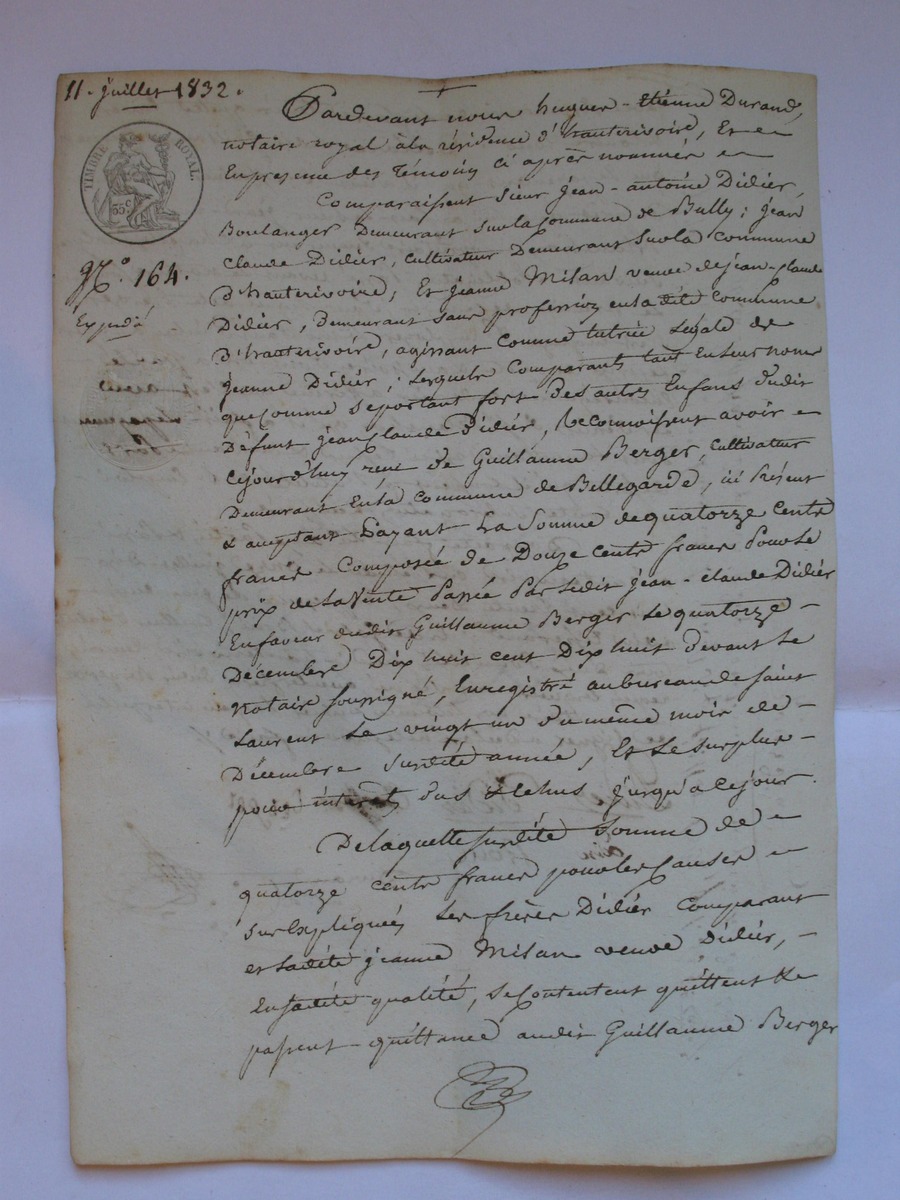 11. juillet 1832.
TIMBRE ROYAL.
35 c
N.° 164.
Expédié
Pardevant nous hugues - Etienne Durand,
notaire royal à la résidence d'hauterivoire, Et
En presence des Témoins ci après nommés
Comparaissent sieur jean - antoine Didier,
Boulanger Demeurant sur la Commune de Bully; jean
claude Didier, cultivateur Demeurant sur la commune
d'hauterivoire, Et jeanne Milan veuve de jean - claude
Didier, demeurant sans profession en la dite commune
d'hauterivoire, agissant comme tutrice légale de
jeanne Didier; lesquels Comparants tant En leur nom
que Comme se portant fort des autres Enfans dudit
Défunt jean claude Didier, Reconnoissent avoir
cejourd'huy reçu de Guillaume Berger, cultivateur
Demeurant En la commune de Bellegarde, ici Présent
& acceptant Payant La Somme de quatorze Cents
francs Composée de Douze cents francs Pour le
prix de la vente Passée Par ledit jean - claude Didier
En faveur dudit Guillaume Berger le quatorze
Décembre Dix huit cent Dix huit devant le
Notaire soussigné, Enregistré au bureau de saint
Laurent le vingt un du même mois de
Décembre susdite année, Et le surplus
pour interets dus & échus jusqu'à ce jour.
De laquelle susdite somme de
quatorze cents francs pour les causes
sus Expliquées les frères Didier Comparant
et ladite jeanne Milan veuve Didier,
En sadite qualité, se Contentent quittent &
passent quittance audit Guillaume Berger